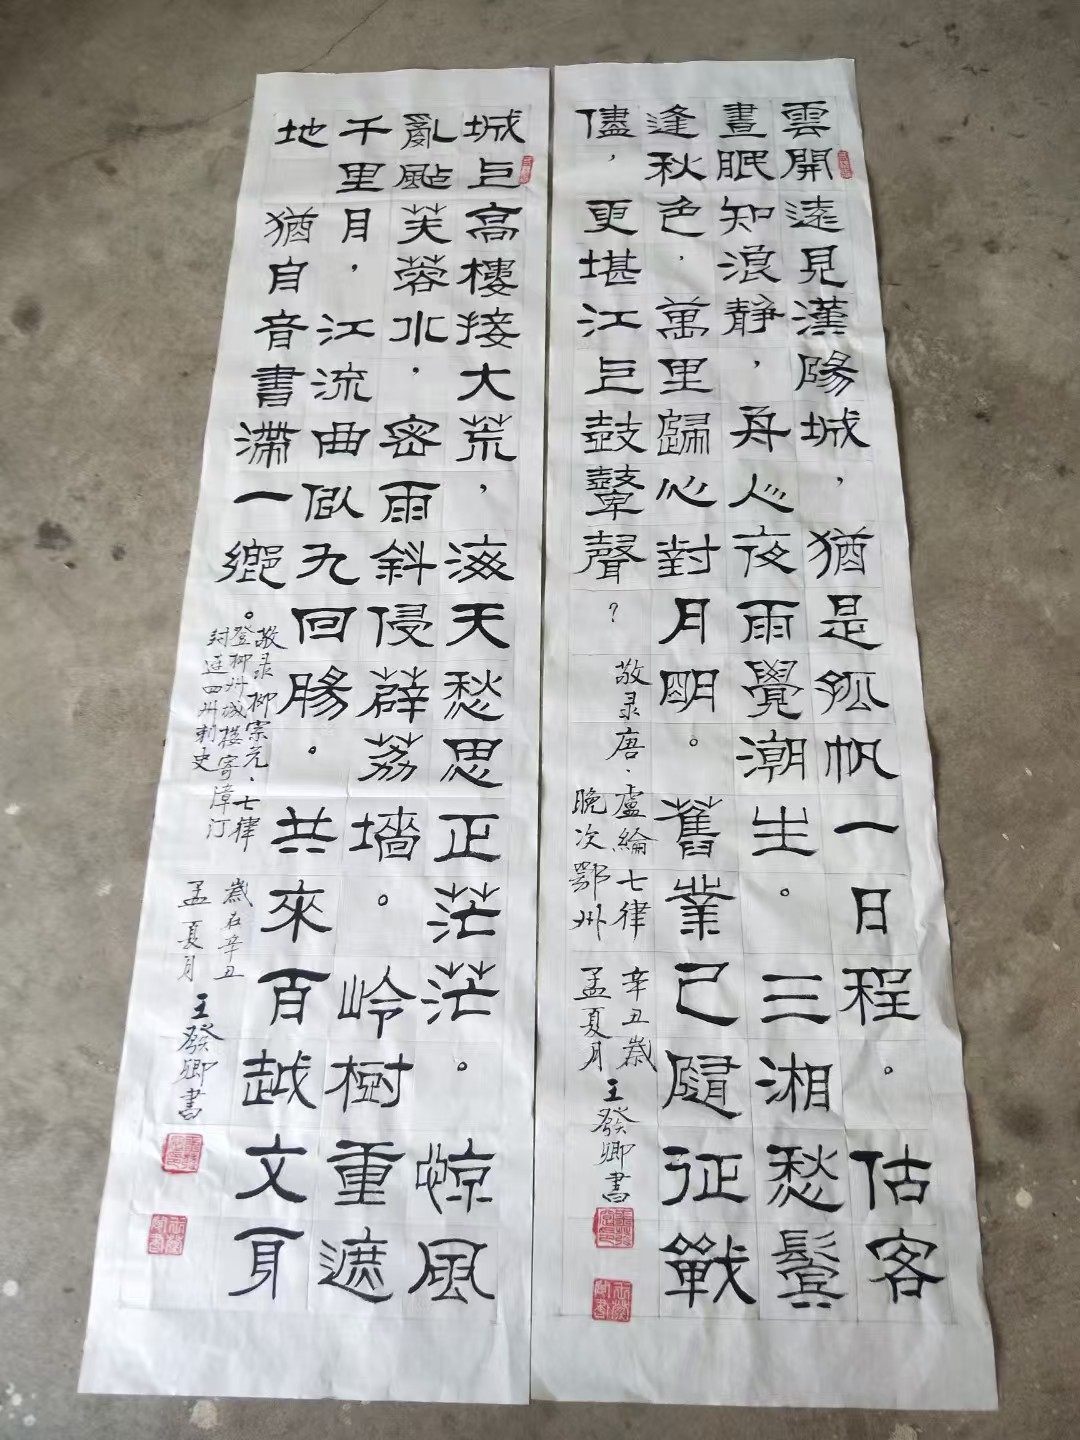 雲開遠見漢陽城，猶是孤帆一日程。估客
晝眠知浪静，舟人夜雨覺潮生。三湘愁鬢
逢秋色，萬里歸心對月明。舊業已隨征戰
儘，更堪江上鼓鼙聲？
敬录唐、盧綸七律 辛丑歲
晚次鄂州 孟夏月
王發卿書
城上高樓接大荒，海天愁思正茫茫。惊風
亂颭芙蓉水，密雨斜侵薜荔墻。岭樹重遮
千里月，江流曲似九回腸。共來百越文身
地 猶自音書滯一鄉。
敬录柳宗元、七律
登柳州城楼寄漳汀
封连四州刺史
歲在辛丑
孟夏月
王發卿書